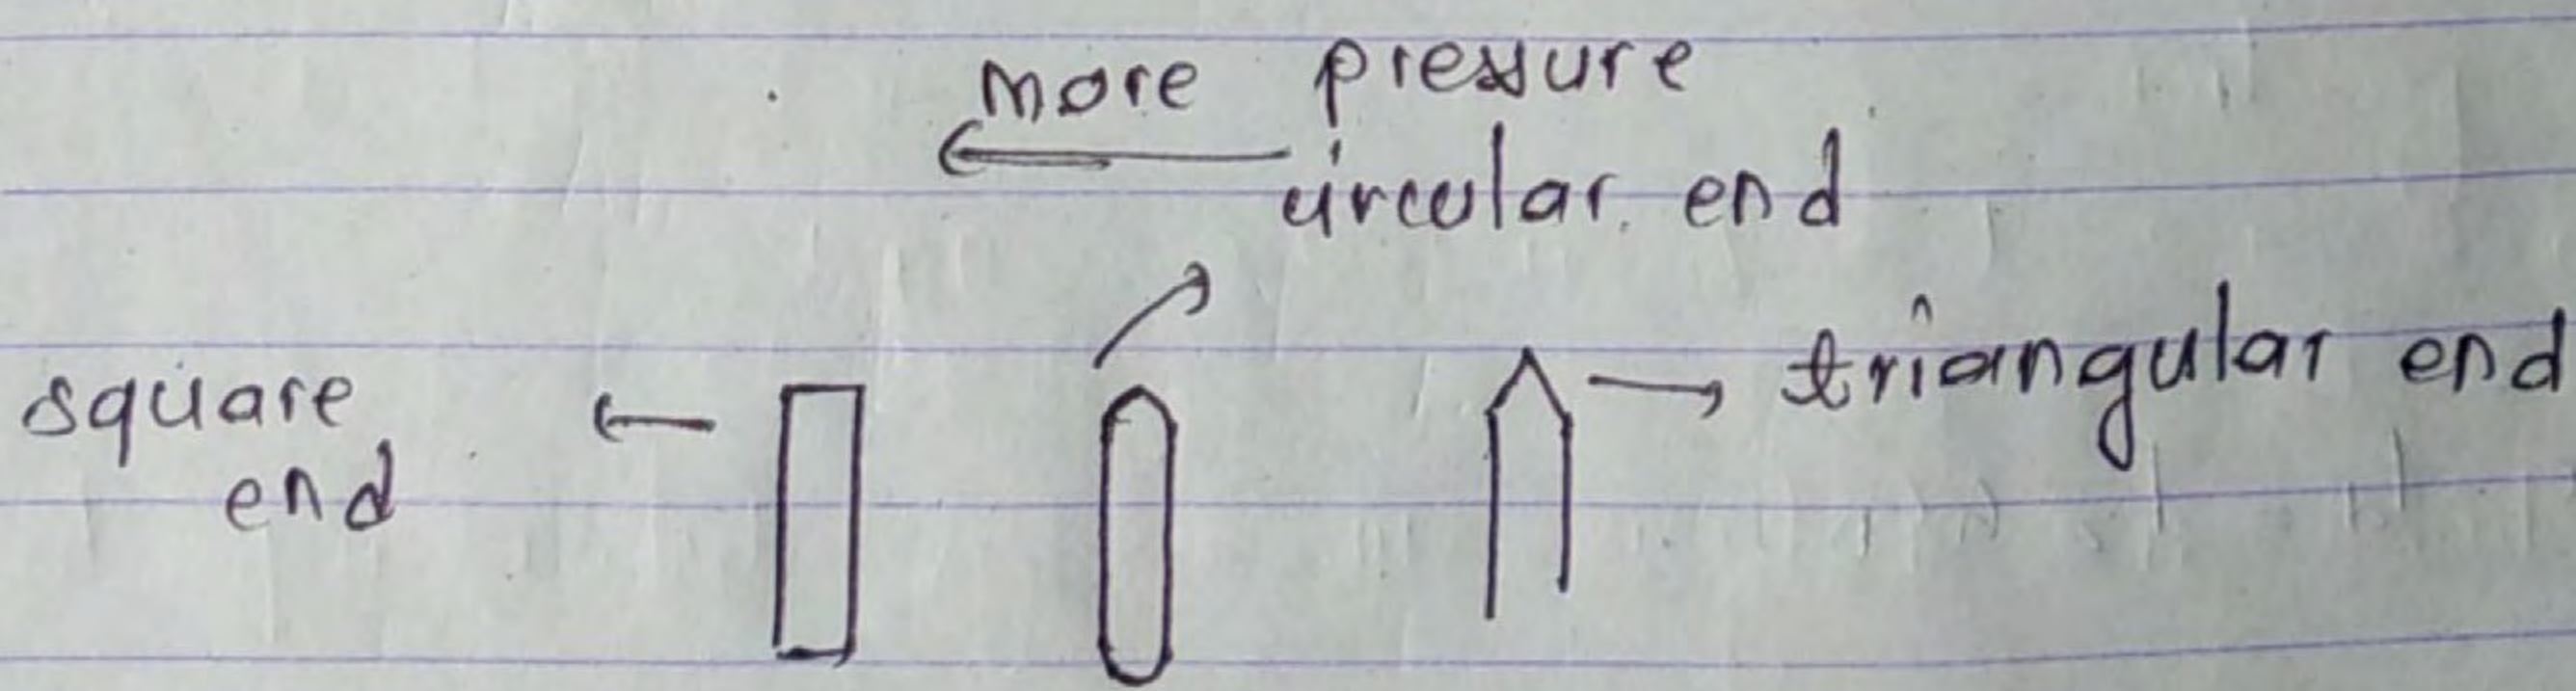 more pressure
circular end
square
end
triangular end